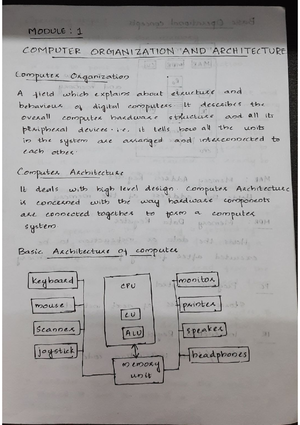 MODULE : 1
COMPUTER ORGANIZATION AND ARCHITECTURE
Computer Organization :
A field which explains about structure and
behaviour of digital computers. It describes the
overall computer hardware structure and all its
peripheral devices. i.e. it tells how all the units
in the system are arranged and interconnected to
each other.
Computer Architecture
It deals with high level design. Computer Architecture
is concerned with the way hardware components
are connected together to form a computer
system
Basic Architecture of computer
keyboard
mouse
Scanner
joystick
CPU
CU
ALU
memory
unit
monitor
printer
speaker
headphones